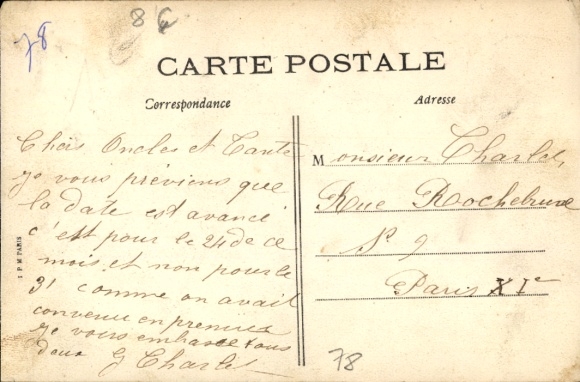 78
86
CARTE POSTALE
Correspondance
Adresse
Chers Oncles et Tante
je vous préviens que
la date est avancé
c'est pour le 24 de ce
mois et non pour le
31 comme on avait
convenu en premier
je vous embrasse tous
deux G Charlet
Monsieur Charlet
Rue Rochebrune
N° 9
Paris XIe
I P M PARIS
78